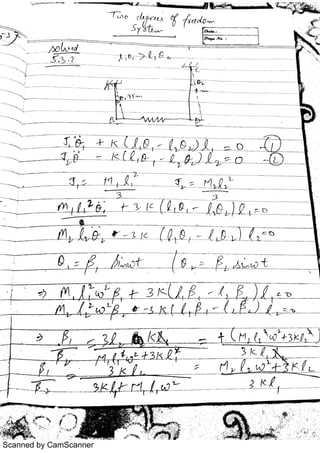 Two degrees of freedom
System
Date :
Page No :
solved
5.3.2
l₁θ₁ > l₂θ₂
θ₂
0.75m
J₁θ̈₁ + K(l₁θ₁ - l₂θ₂)l₁ = 0 -①
J₂θ̈ - K(l₁θ₁ - l₂θ₂)l₂ = 0 -②
J₁ = M₁l₁²/3 J₂ = M₂l₂²/3
m₁l₁²θ̈₁ + 3K(l₁θ₁ - l₂θ₂)l₁ = 0
M₂l₂θ̈₂ - 3K(l₁θ₁ - l₂θ₂)l₂ = 0
θ₁ = β₁ sinωt / θ₂ = β₂ sinωt
⇒ M₁l₁²ω²β₁ + 3K(l₁β₁ - l₂β₂)l₁ = 0
M₂l₂²ω²β₂ - 3K(l₁β₁ - l₂β₂)l₂ = 0
⇒ β₁/β₂ = 3l₂Kl₁/(M₁l₁²ω² + 3Kl₁²) = +(M₂l₂²ω² + 3Kl₂²)/3Kl₁l₂
β₁/β₂ = 3Kl₂/(3Kl₁ + M₁l₁ω²) = (M₂l₂ω² + 3Kl₂)/3Kl₁
Scanned by CamScanner